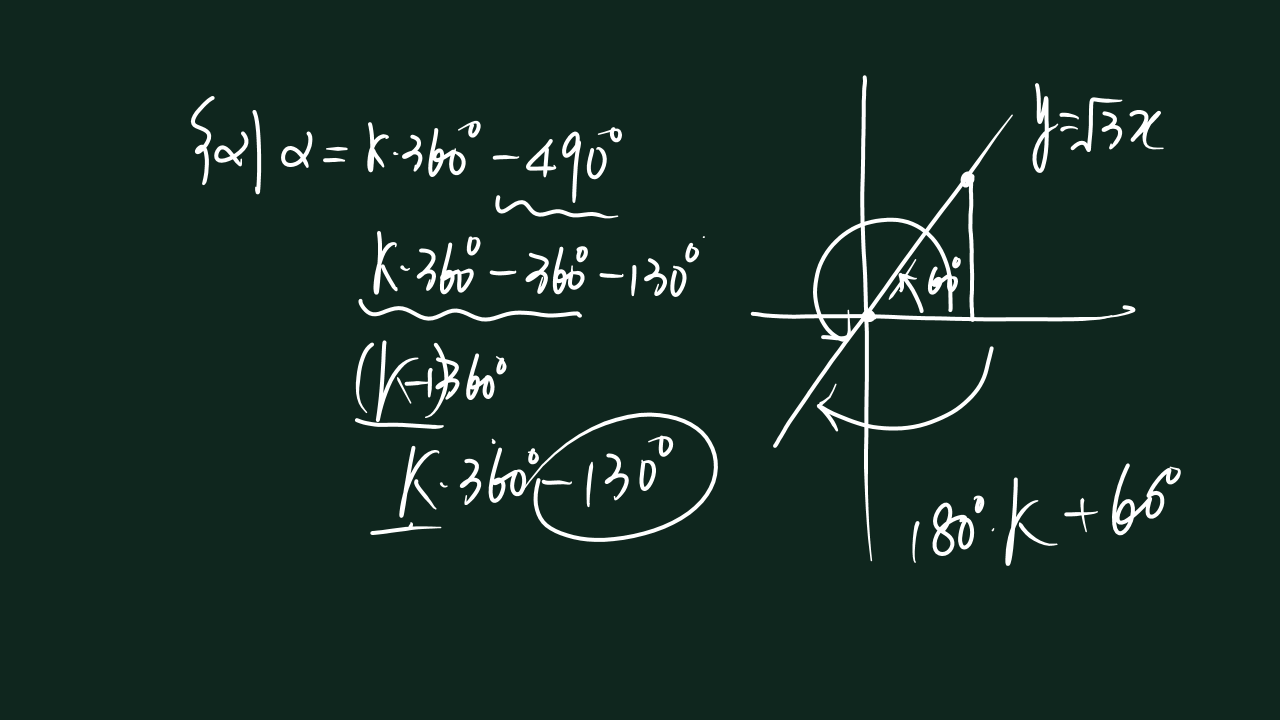 {α| α = k·360° - 490°
k·360° - 360° - 130°
(k-1)360°
k·360° - 130°
y=√3x
60°
180°·k + 60°